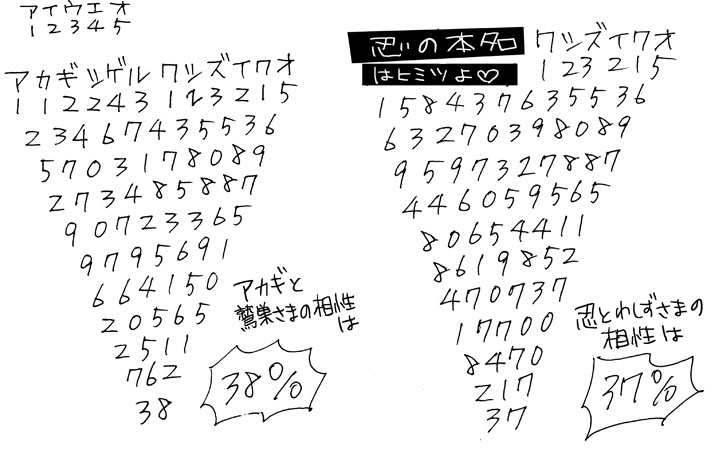 アイウエオ
12345
アカギシゲル ワシズイワオ
112243 123215
23467435536
5703178089
273485887
90723365
9795691
664150
20565
2511
762
38
アカギと
鷲巣さまの相性
は
38%
忍の本名 ワシズイワオ
はヒミツよ♡ 123215
158437635536
63270398089
9597327887
446059565
80654411
8619852
470737
17700
8470
217
37
忍とわしずさまの
相性は
37%